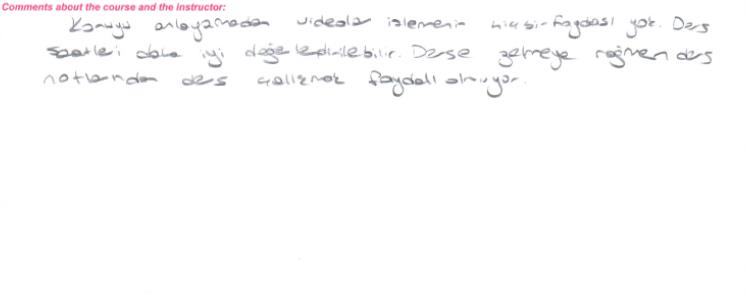 Comments about the course and the instructor:
Konuyu anlayamadan videolar izlemenin hiç bir faydası yok. Ders
saatleri daha iyi değerlendirilebilir. Derse gelmeye rağmen ders
notlarından ders çalışmak faydalı olmuyor.